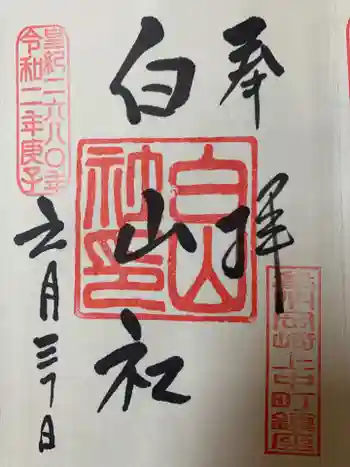 奉拝
白山社
白山神印
皇紀二六八〇年
令和二年庚子
六月三十日